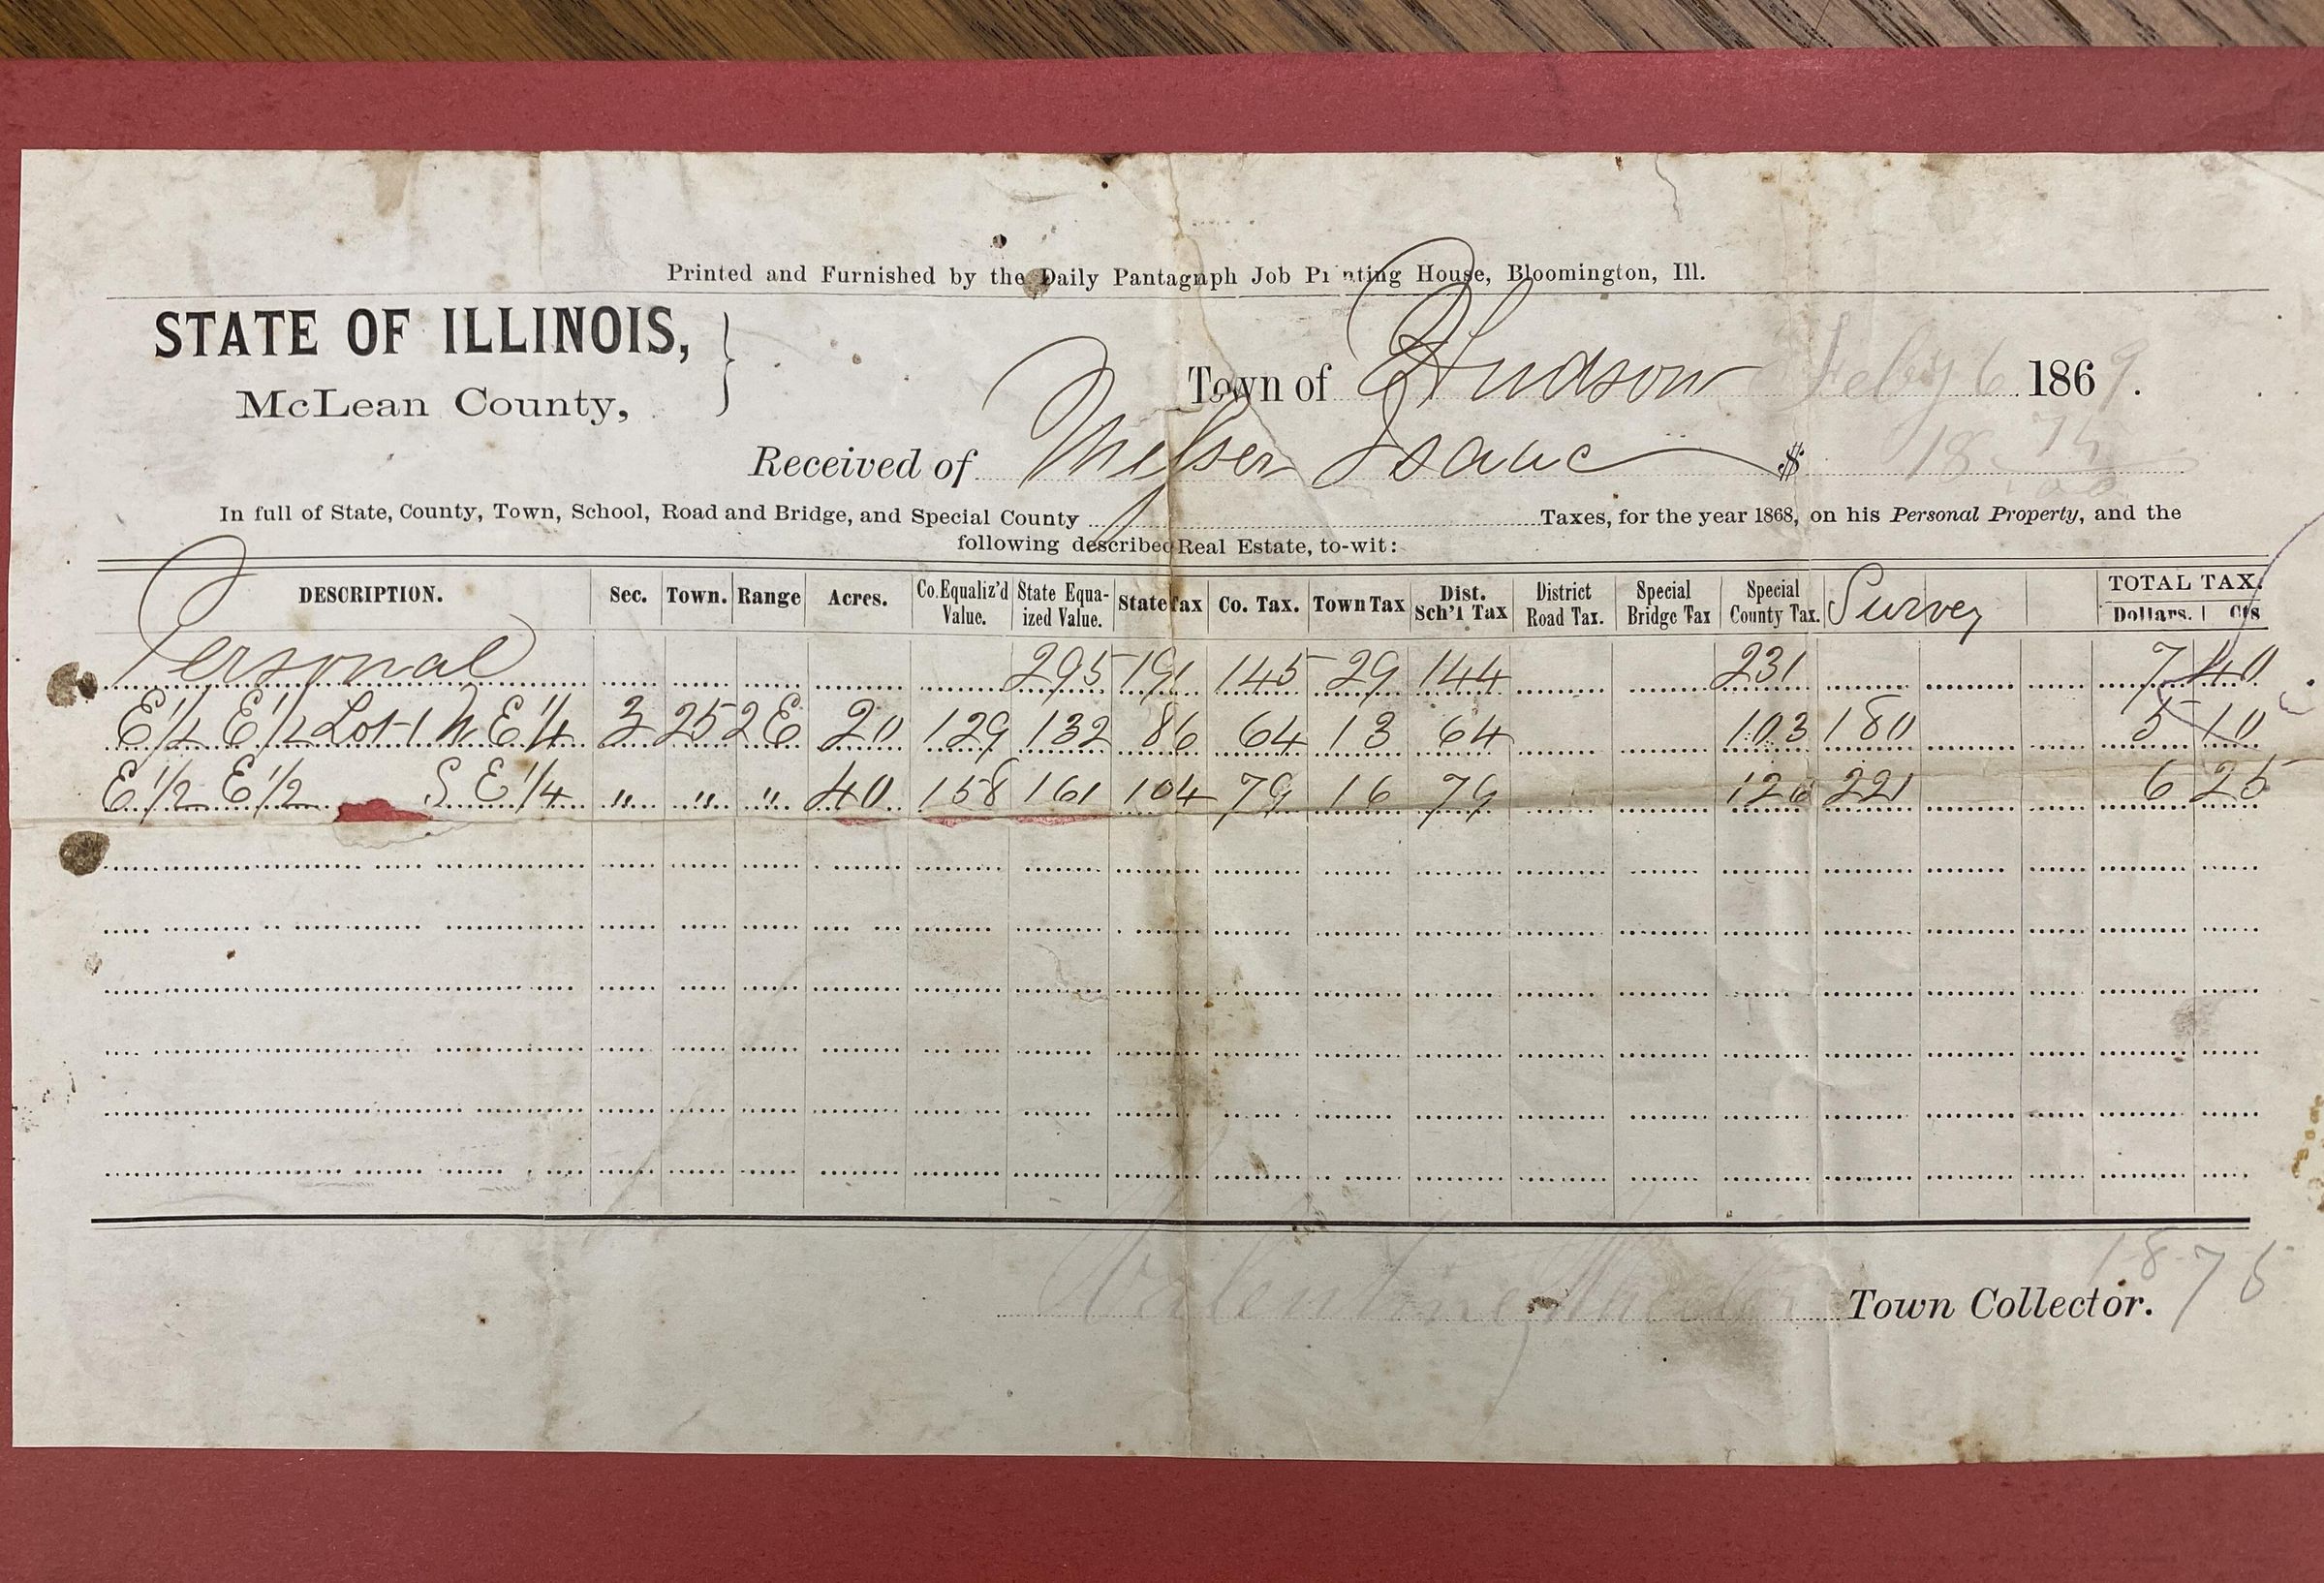 Printed and Furnished by the Daily Pantagraph Job Printing House, Bloomington, Ill.
STATE OF ILLINOIS,
McLean County,
Town of Hudson Feby 6 1869.
Received of Isaac $ 18 75
In full of State, County, Town, School, Road and Bridge, and Special County Taxes, for the year 1868, on his Personal Property, and the
following described Real Estate, to-wit:
DESCRIPTION. Sec. Town. Range Acres. Co. Equaliz'd Value. State Equalized Value. State Tax Co. Tax. Town Tax Dist. Sch'l Tax District Road Tax. Special Bridge Tax Special County Tax. Survey TOTAL TAX. Dollars. Cts
Personal 295 191 145 29 144 231 7 40
E 1/2 E 1/2 Lot 1 N E 1/4 3 25 2E 20 129 132 86 64 13 64 103 180 5 10
E 1/2 E 1/2 S E 1/4 " " " 40 158 161 104 79 16 79 126 221 6 25
18 75
Valentine Town Collector.